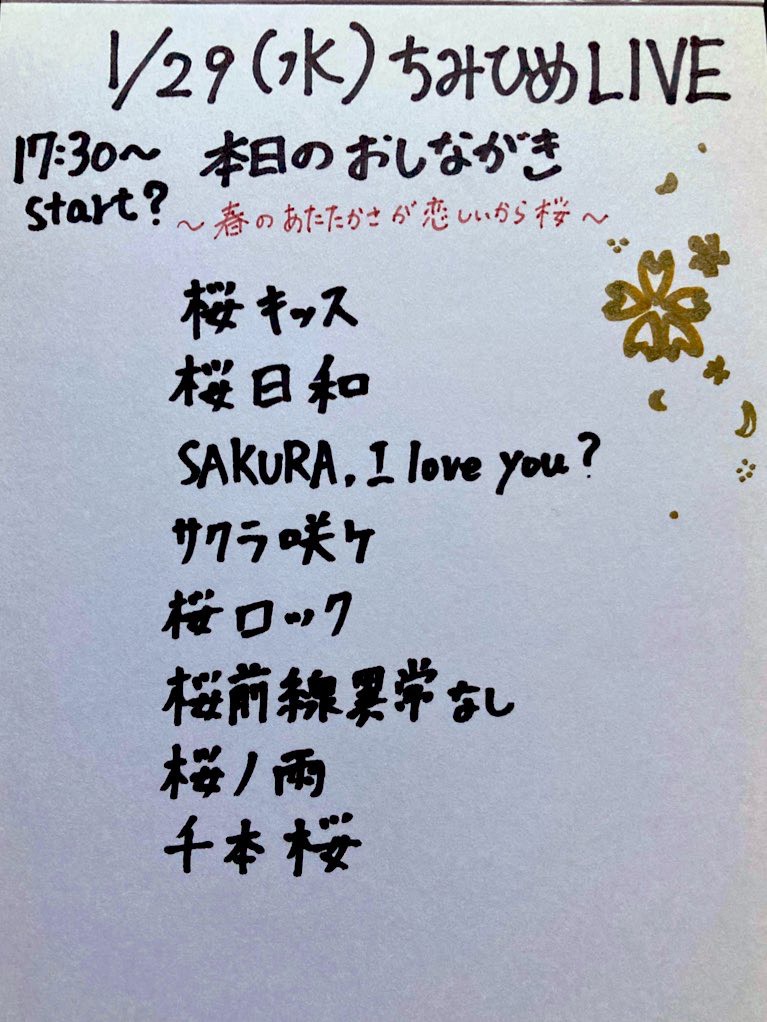 1/29(水)ちみひめLIVE
17:30〜 本日のおしながき
start?
〜春のあたたかさが恋しいから桜〜
桜キッス
桜日和
SAKURA, I love you?
サクラ咲ケ
桜ロック
桜前線異常なし
桜ノ雨
千本桜